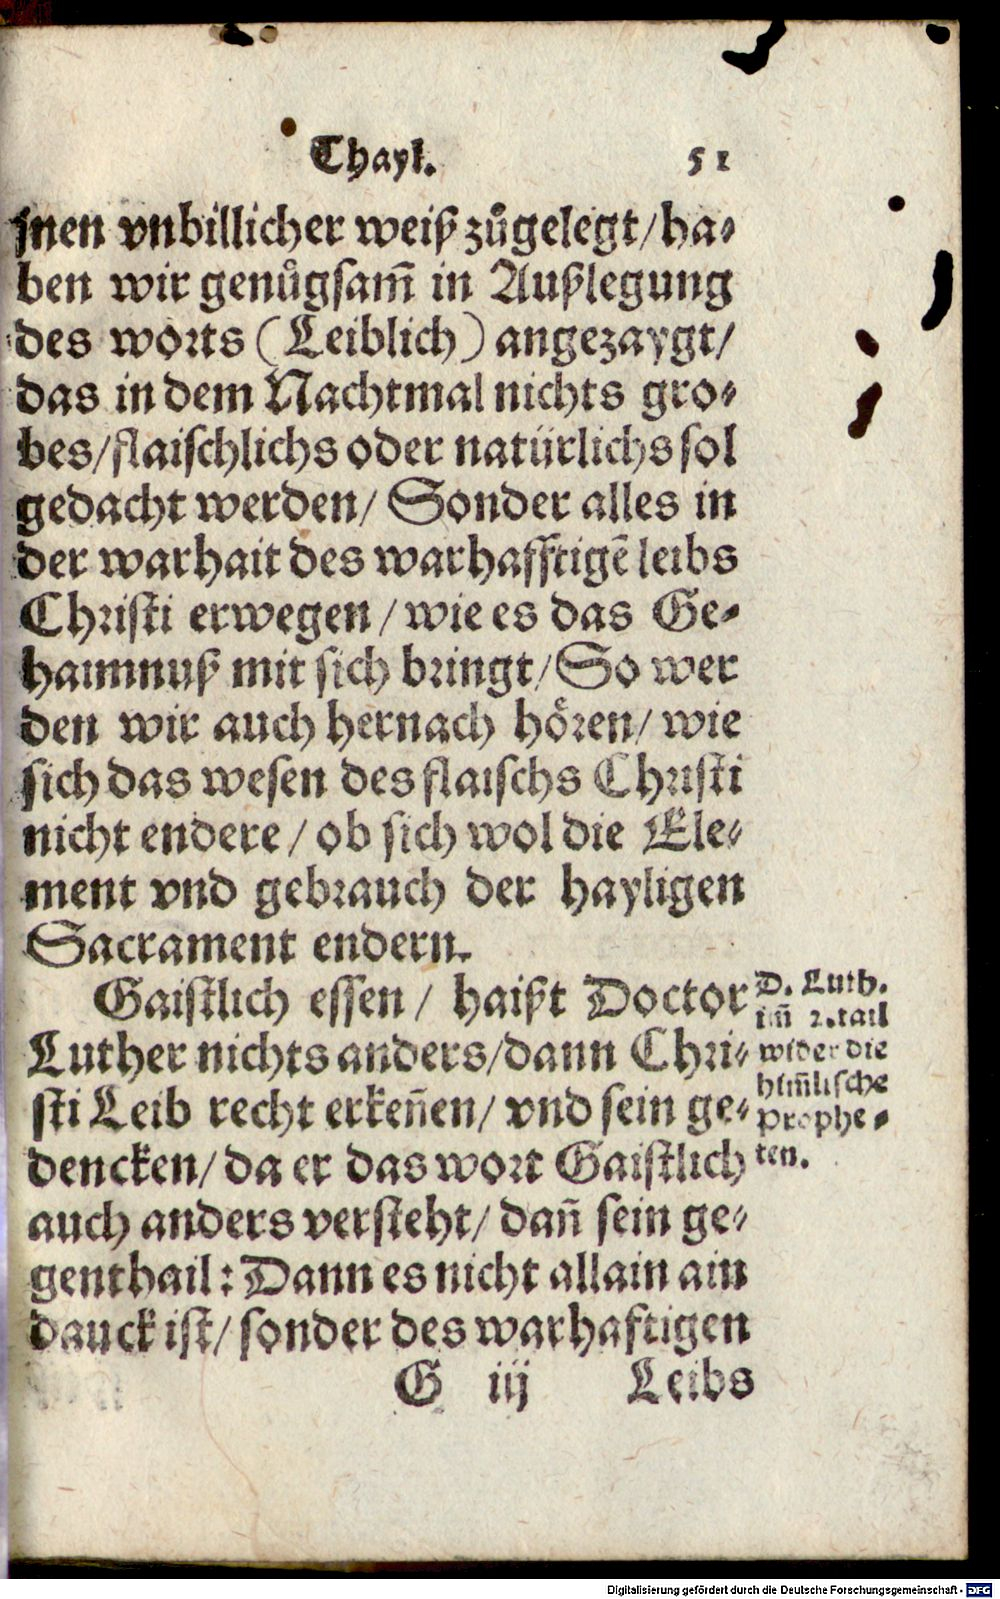 Thayl. 51
jnen vnbillicher weiß zůgelegt/ ha⸗
ben wir genůgsam̃ in Außlegung
des worts (Leiblich) angezaygt/
das in dem Nachtmal nichts gro⸗
bes/ flaischlichs oder natürlichs sol
gedacht werden/ Sonder alles in
der warhait des warhafftigẽ leibs
Christi erwegen/ wie es das Ge⸗
haimnuß mit sich bringt/ So wer
den wir auch hernach hören/ wie
sich das wesen des flaischs Christi
nicht endere/ ob sich wol die Ele⸗
ment vnd gebrauch der hayligen
Sacrament endern.
Gaistlich essen/ haißt Doctor
Luther nichts anders/ dann Chri⸗
sti Leib recht erkeñen/ vnd sein ge⸗
dencken/ da er das wort Gaistlich
auch anders versteht/ dañ sein ge⸗
genthail: Dann es nicht allain ain
dauck ist/ sonder des warhaftigen
D. Luth.
im̃ 2. tail
wider die
him̃lische
Prophe⸗
ten.
G iij Leibs
Digitalisierung gefördert durch die Deutsche Forschungsgemeinschaft - DFG